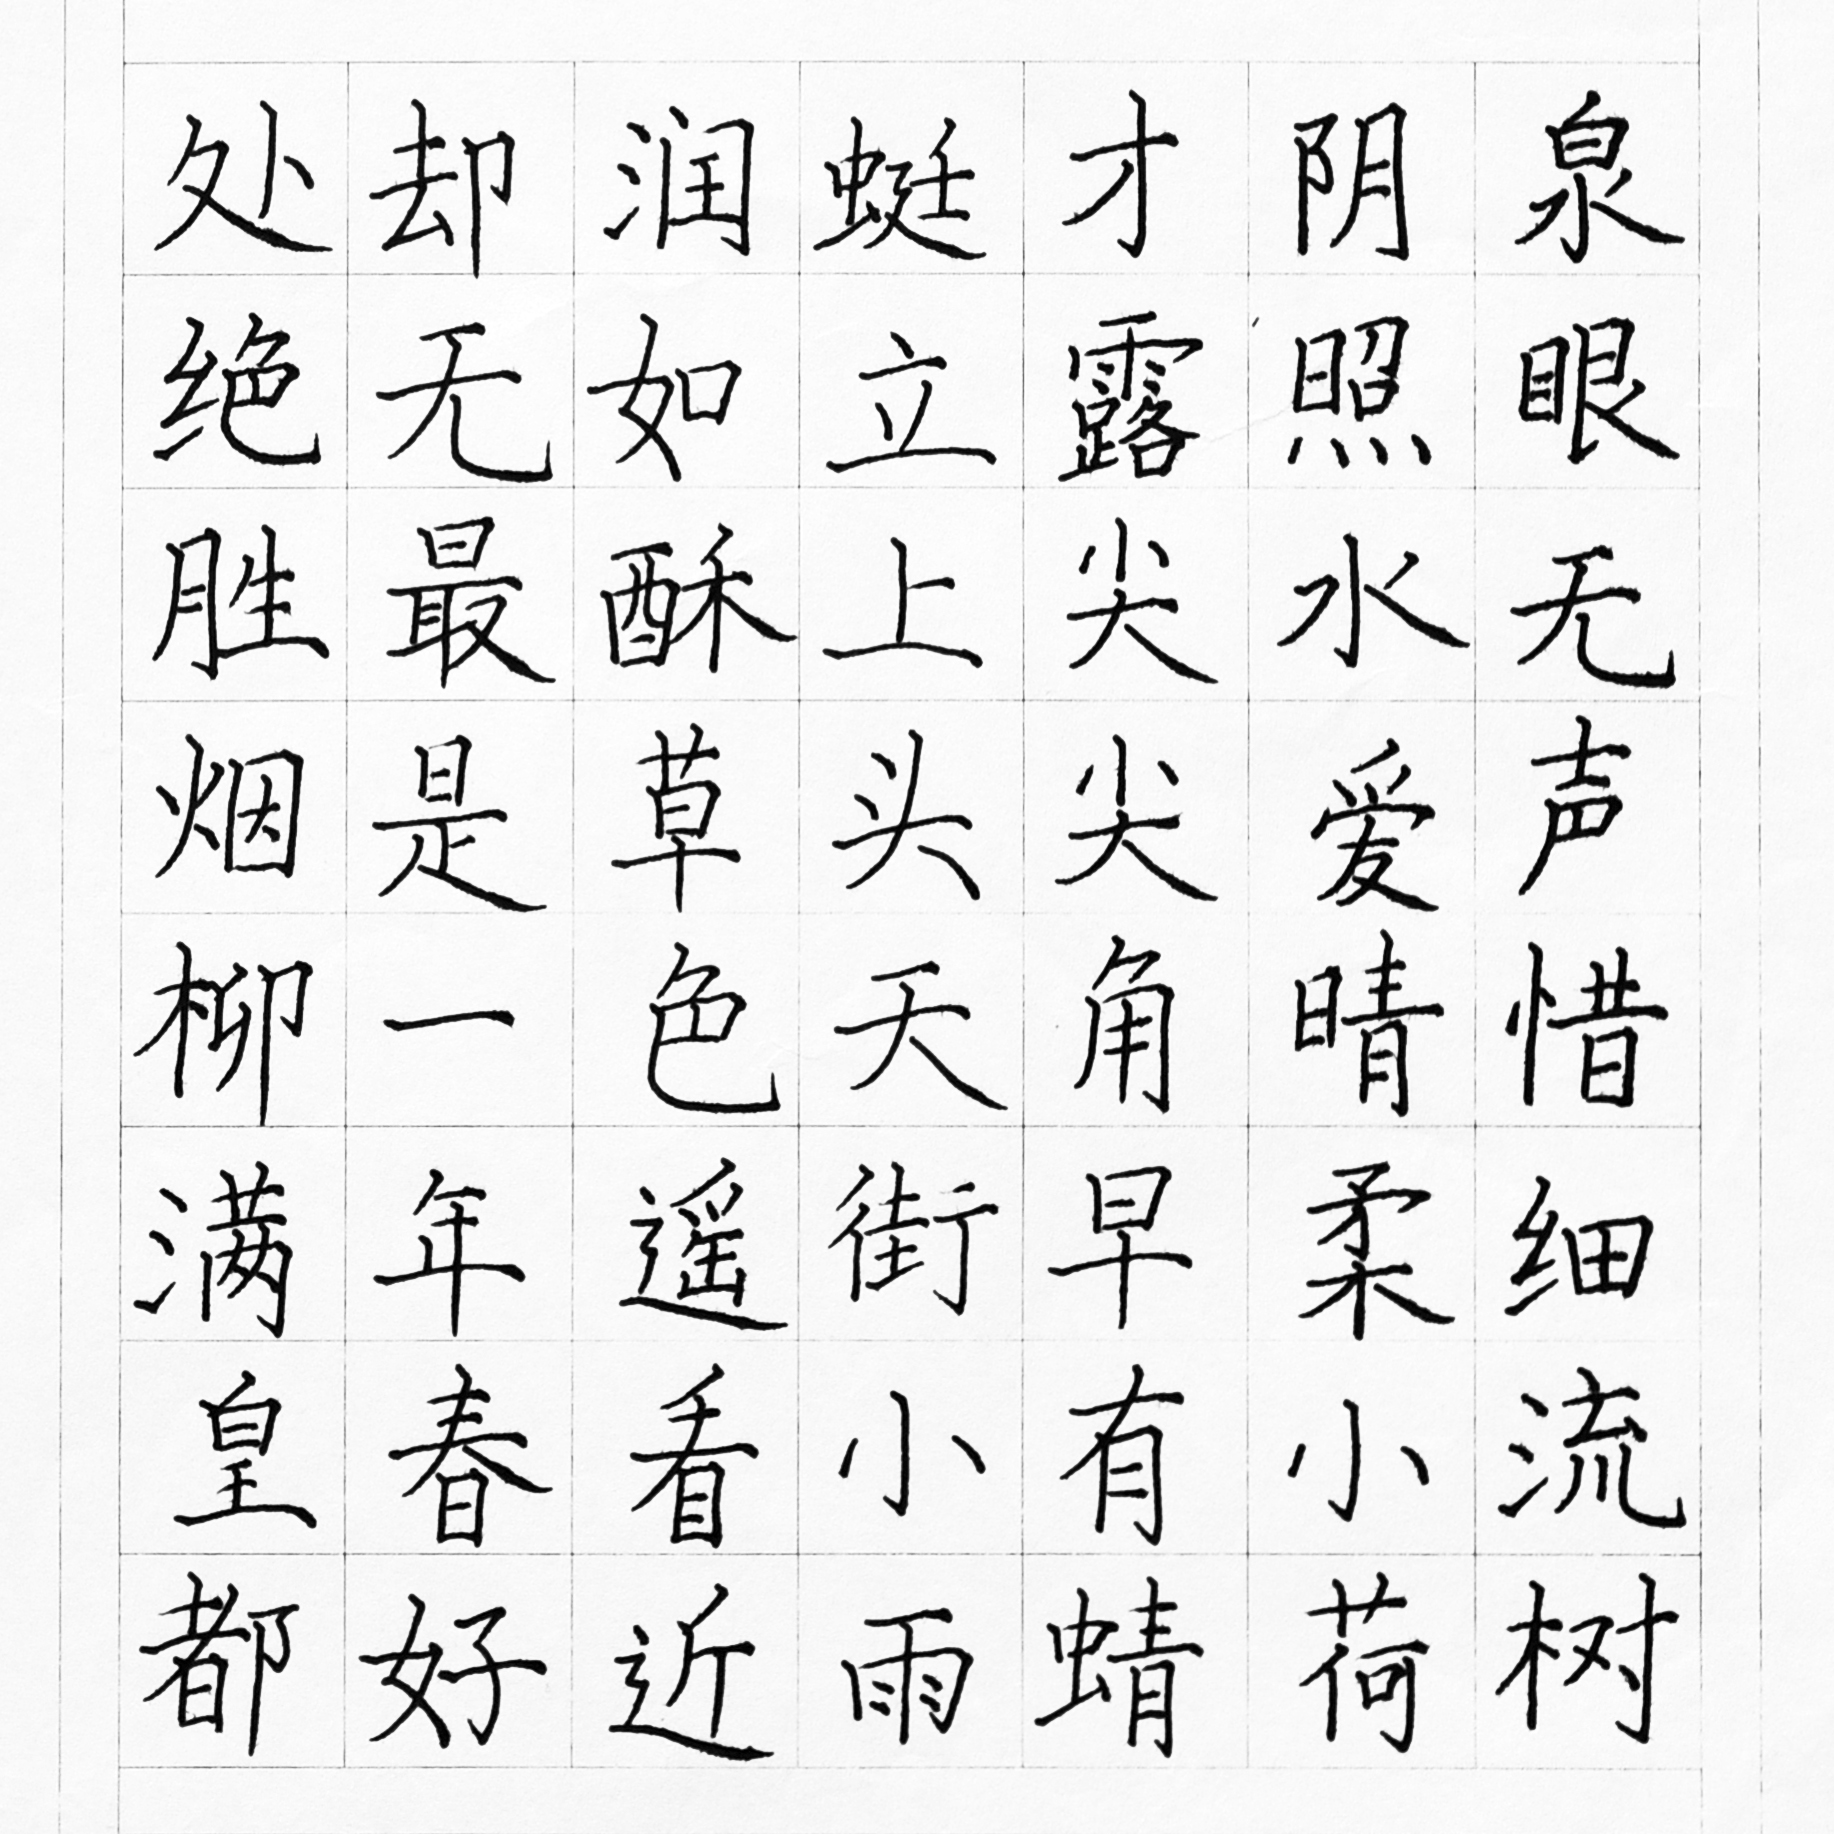 泉眼无声惜细流树
阴照水爱晴柔小荷
才露尖尖角早有蜻
蜓立上头天街小雨
润如酥草色遥看近
却无最是一年春好
处绝胜烟柳满皇都